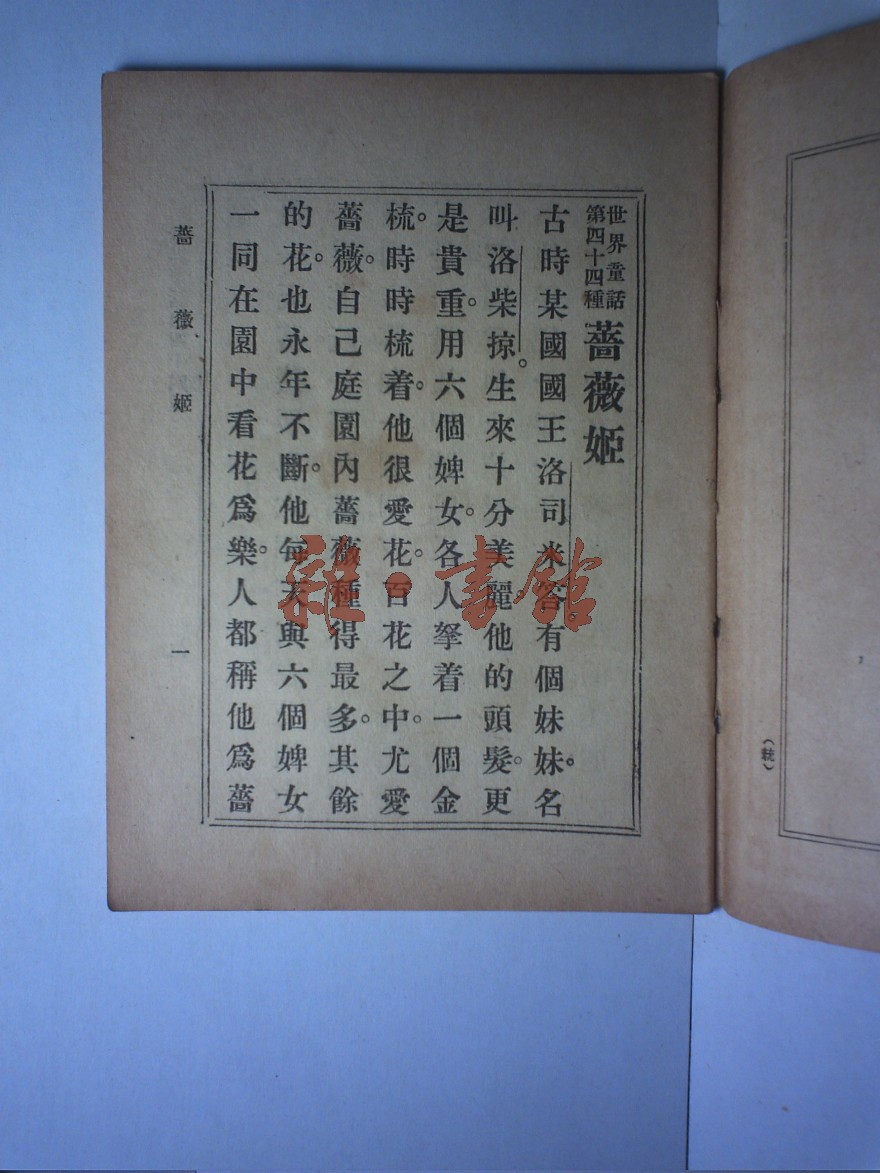 世界童話
第四十四種
薔薇姬
古時某國國王洛司米答有個妹妹。名
叫洛柴掠。生來十分美麗。他的頭髮。更
是貴重。用六個婢女。各人拏着一個金
梳。時時梳着。他很愛花。百花之中。尤愛
薔薇。自己庭園內薔薇種得最多。其餘
的花。也永年不斷。他每天與六個婢女
一同在園中看花爲樂。人都稱他爲薔
薔薇姬
一
雜·書館